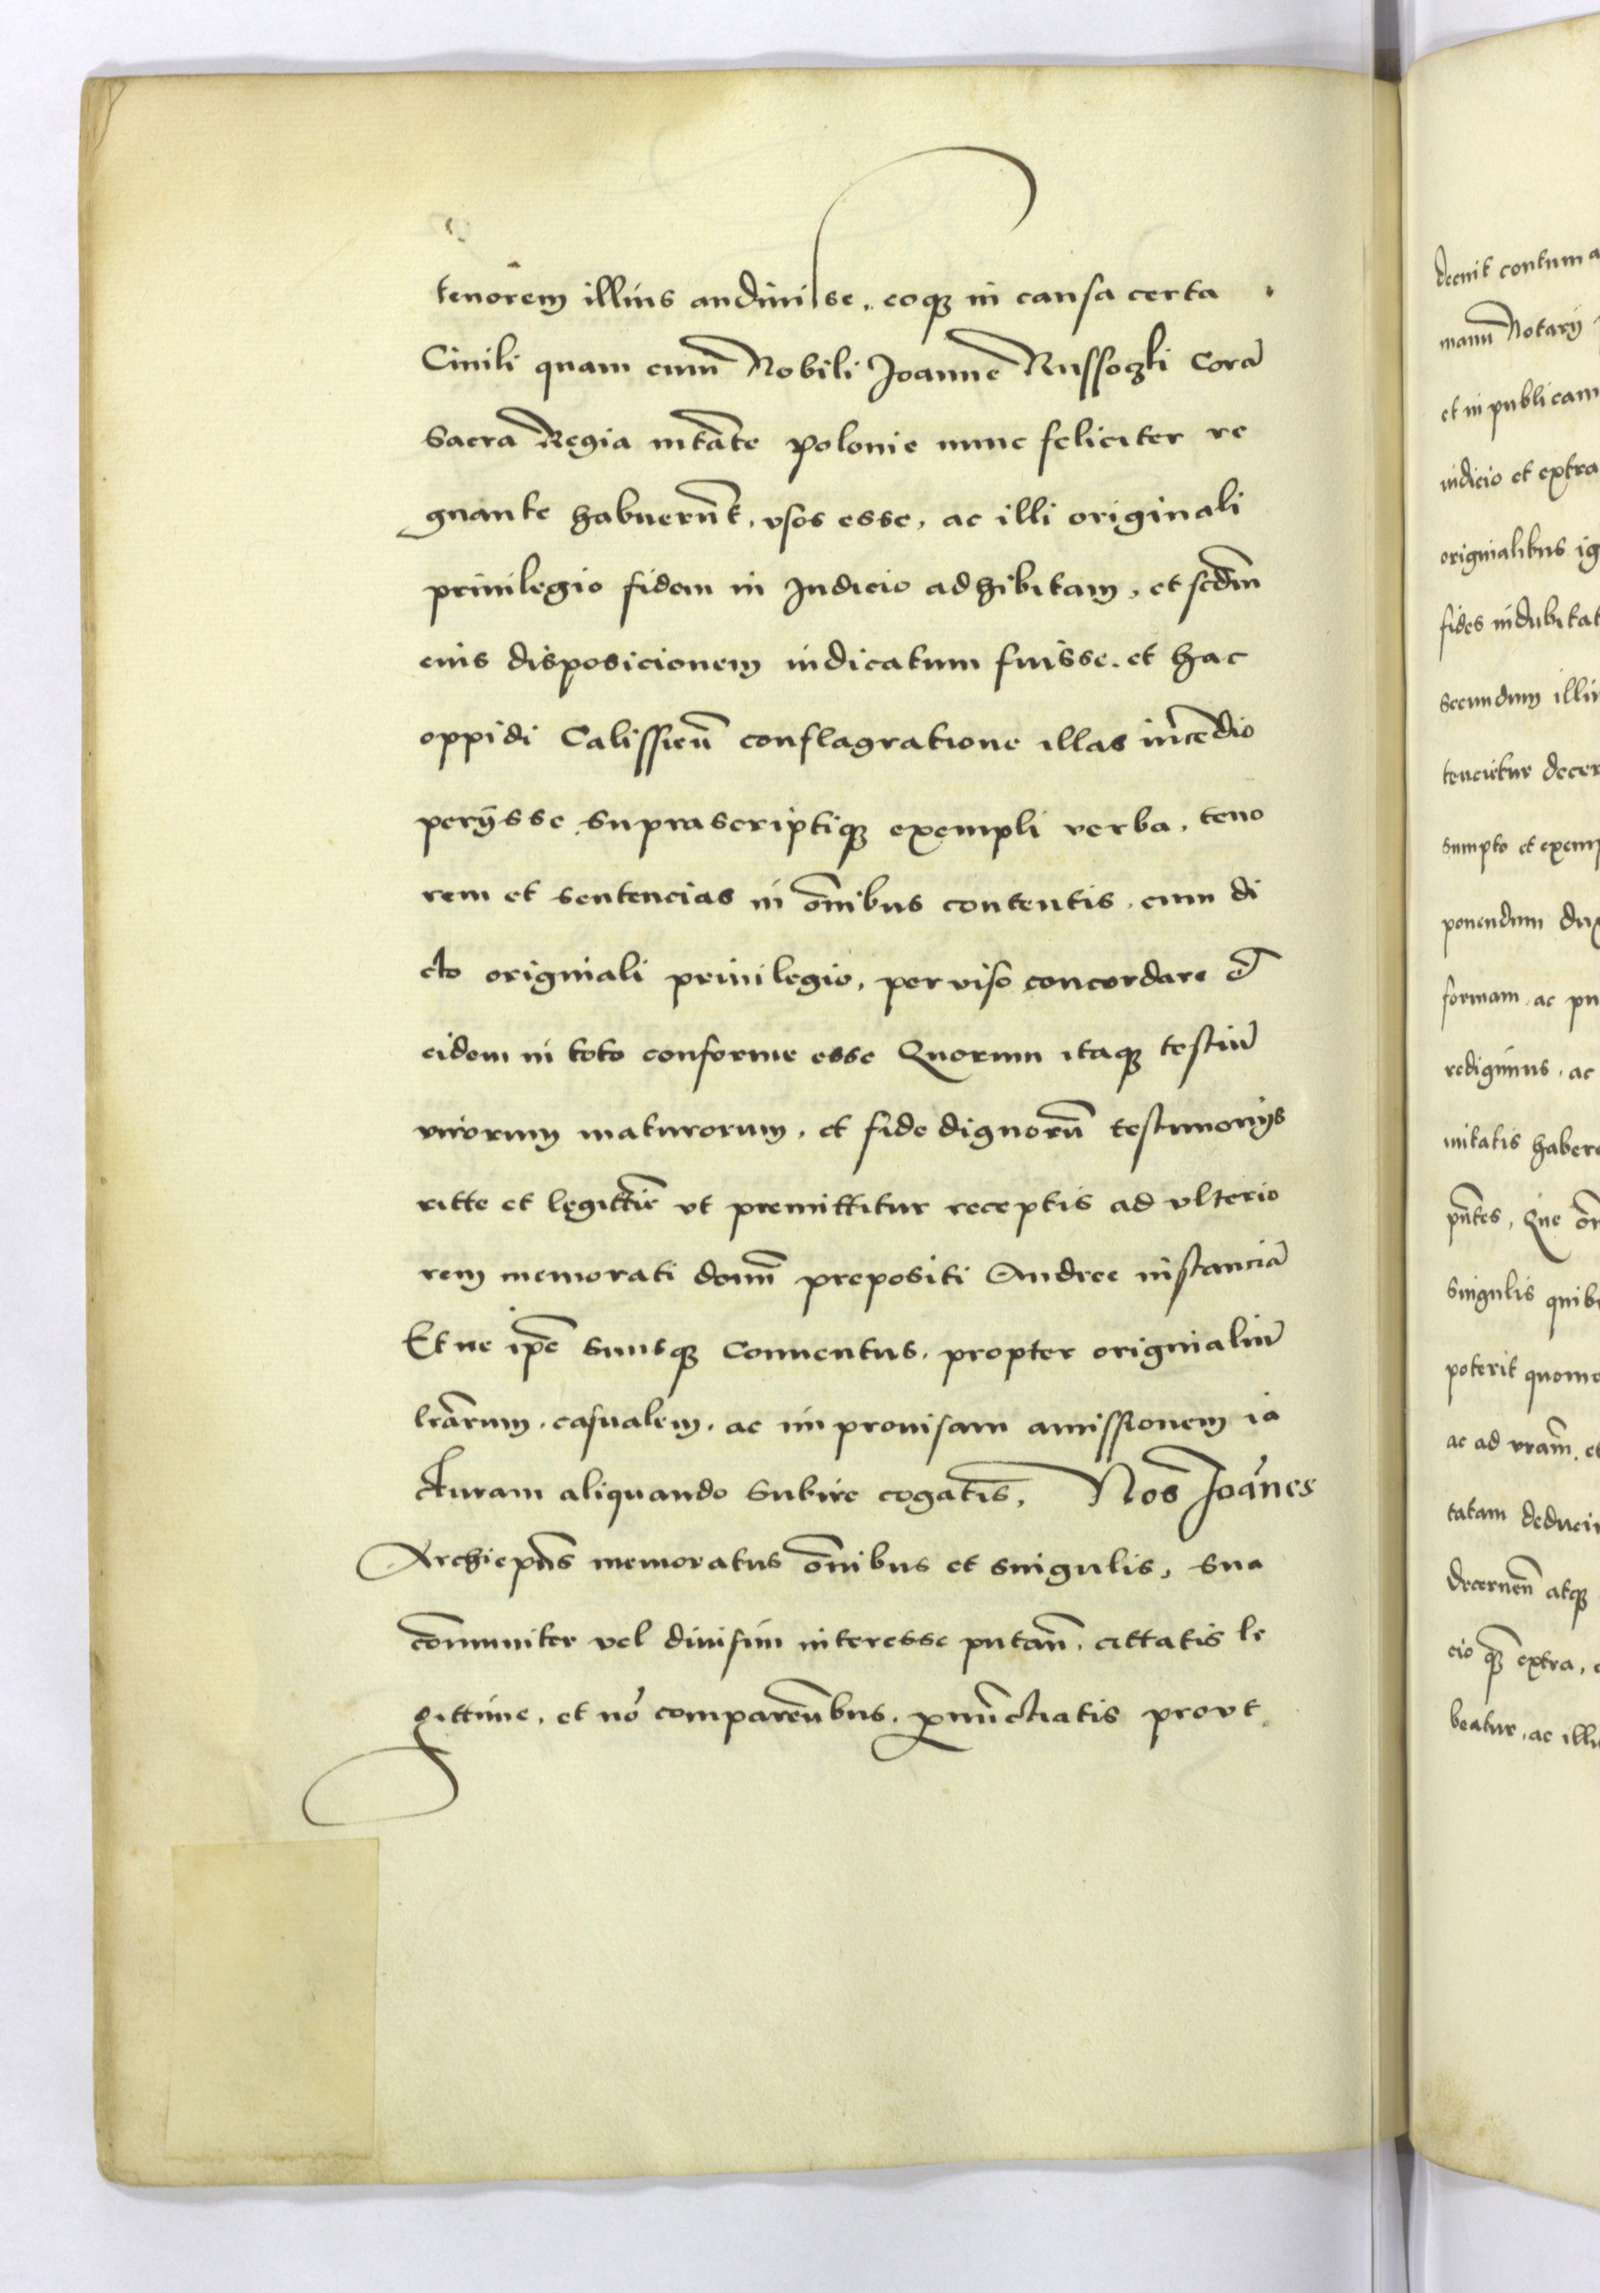 tenorem illius audiuisse, eoq in causa certa
Ciuili quam cum Nobili Joanne Russoczki Cora
Sacra Regia mtate Polonie nunc feliciter re
gnante habuerut, vsos esse, ac illi originali
priuilegio fidem in Judicio adhibitam, et scdm
eius disposicionem iudicatum fuisse, et hac
oppidi Calissien conflagratione illas incedio
perysse, suprascriptiq exempli verba, teno
rem et sentencias in omibus contentis, cum di
cto originali priuilegio, per viso concordare &
eidem in toto conforme esse Quorum itaq testiu
virorum maturorum, et fide dignoru testimonys
ritte et legittie vt premittitur receptis ad vlterio
rem memorati domi prepositi Andree instancia
Et ne ipe suusq Conuentus, propter originaliu
lrarum, casualem, ac improuisam amissionem ia
cturam aliquando subire cogatis, Nos Joanes
Archiepus memoratus omibus et singulis, sua
comuniter vel diuisim interesse putan, cittatis le
gittime, et no comparetibus, pnuctiatis prout
decuit contuma
manu Notary
et in publicam
iudicio et extra
originalibus ig
fides indubitat
secundum illiu
teneietur decer
sumpto et exemp
ponendum dux
formam, ac pu
redigimus, ac
mitatis habere
pntes, Que om
singulis quibu
poterit quomo
ac ad vram, et
tatam deducim
decernen atq
cio q extra,
beatur, ac illu